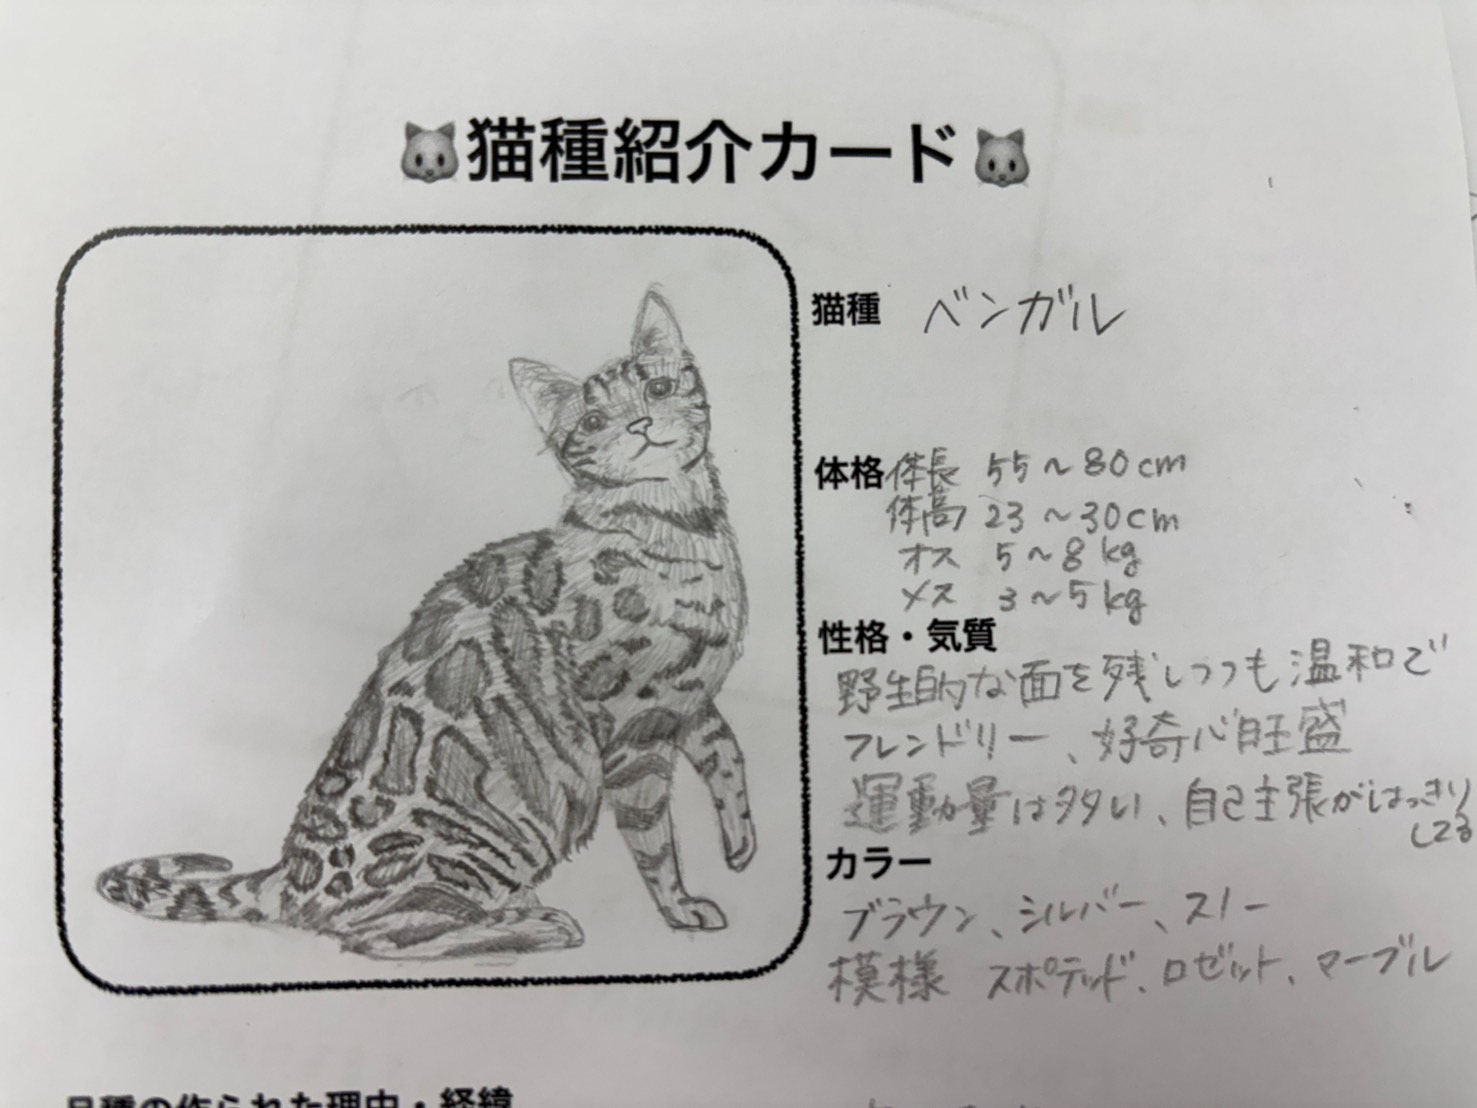 猫種紹介カード
猫種 ベンガル
体格 体長 55～80cm
体高 23～30cm
オス 5～8kg
メス 3～5kg
性格・気質
野生的な面を残しつつも温和で
フレンドリー、好奇心旺盛
運動量は多い、自己主張がはっきり
してる
カラー
ブラウン、シルバー、スノー
模様 スポテッド、ロゼット、マーブル
品種の作られた理由・経緯